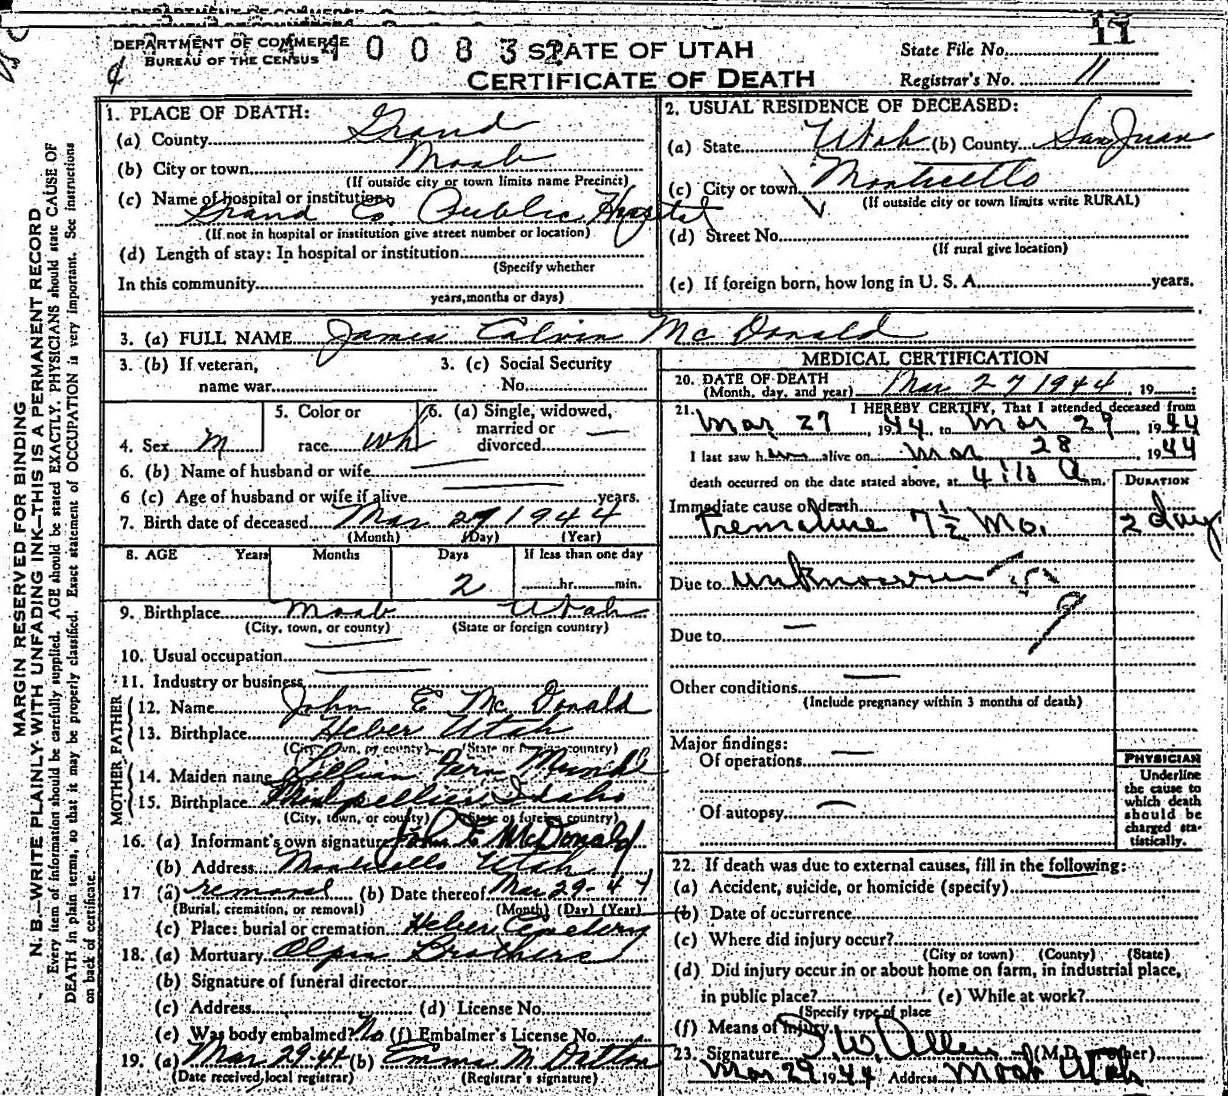 DEPARTMENT OF COMMERCE
BUREAU OF THE CENSUS
STATE OF UTAH
CERTIFICATE OF DEATH
State File No. 11
Registrar's No. 11
MARGIN RESERVED FOR BINDING
N. B.—WRITE PLAINLY WITH UNFADING INK—THIS IS A PERMANENT RECORD
Every item of information should be carefully supplied. AGE should be stated EXACTLY. PHYSICIANS should state CAUSE OF
DEATH in plain terms, so that it may be properly classified. Exact statement of OCCUPATION is very important. See instructions
on back of certificate.
1. PLACE OF DEATH:
(a) County Grand
(b) City or town Moab
(If outside city or town limits name Precinct)
(c) Name of hospital or institution:
Grand Co Public Hospital
(If not in hospital or institution give street number or location)
(d) Length of stay: In hospital or institution
(Specify whether
In this community
years, months or days)
2. USUAL RESIDENCE OF DECEASED:
(a) State Utah (b) County San Juan
(c) City or town Monticello
(If outside city or town limits write RURAL)
(d) Street No.
(If rural give location)
(e) If foreign born, how long in U. S. A. years.
3. (a) FULL NAME James Calvin McDonald
3. (b) If veteran, name war
3. (c) Social Security No.
4. Sex M
5. Color or race Wh
6. (a) Single, widowed, married or divorced —
6. (b) Name of husband or wife —
6 (c) Age of husband or wife if alive — years.
7. Birth date of deceased Mar 27 1944
(Month) (Day) (Year)
8. AGE Years Months Days If less than one day
2 hr. min.
9. Birthplace Moab Utah
(City, town, or county) (State or foreign country)
10. Usual occupation —
11. Industry or business —
FATHER
12. Name John E McDonald
13. Birthplace Heber Utah
(City, town, or county) (State or foreign country)
MOTHER
14. Maiden name Lillian Fern
15. Birthplace Montpellier Idaho
(City, town, or county) (State or foreign country)
16. (a) Informant's own signature John E. McDonald
(b) Address Monticello Utah
17 (a) removal (b) Date thereof Mar 29-44
(Burial, cremation, or removal) (Month) (Day) (Year)
(c) Place: burial or cremation Heber Cemetery
18. (a) Mortuary Olpin Brothers
(b) Signature of funeral director
(c) Address (d) License No.
(e) Was body embalmed? No (f) Embalmer's License No.
19. (a) Mar 29-44 (b) Emma M Dalton
(Date received local registrar) (Registrar's signature)
MEDICAL CERTIFICATION
20. DATE OF DEATH
(Month, day, and year) Mar 27 1944, 19
21. I HEREBY CERTIFY, That I attended deceased from
Mar 27, 1944 to Mar 29 1944
I last saw him alive on Mar 28 1944
death occurred on the date stated above, at 4:10 A m.
DURATION
Immediate cause of death
Premature 7 1/2 Mo. 2 day
Due to unknown
Due to —
Other conditions —
(Include pregnancy within 3 months of death)
Major findings:
Of operations —
Of autopsy —
PHYSICIAN
Underline
the cause to
which death
should be
charged sta-
tistically.
22. If death was due to external causes, fill in the following:
(a) Accident, suicide, or homicide (specify)
(b) Date of occurrence
(c) Where did injury occur?
(City or town) (County) (State)
(d) Did injury occur in or about home on farm, in industrial place,
in public place? (e) While at work?
(Specify type of place
(f) Means of injury
23. Signature I.W. Allen (M.D. or other)
Mar 29 1944 Address Moab Utah